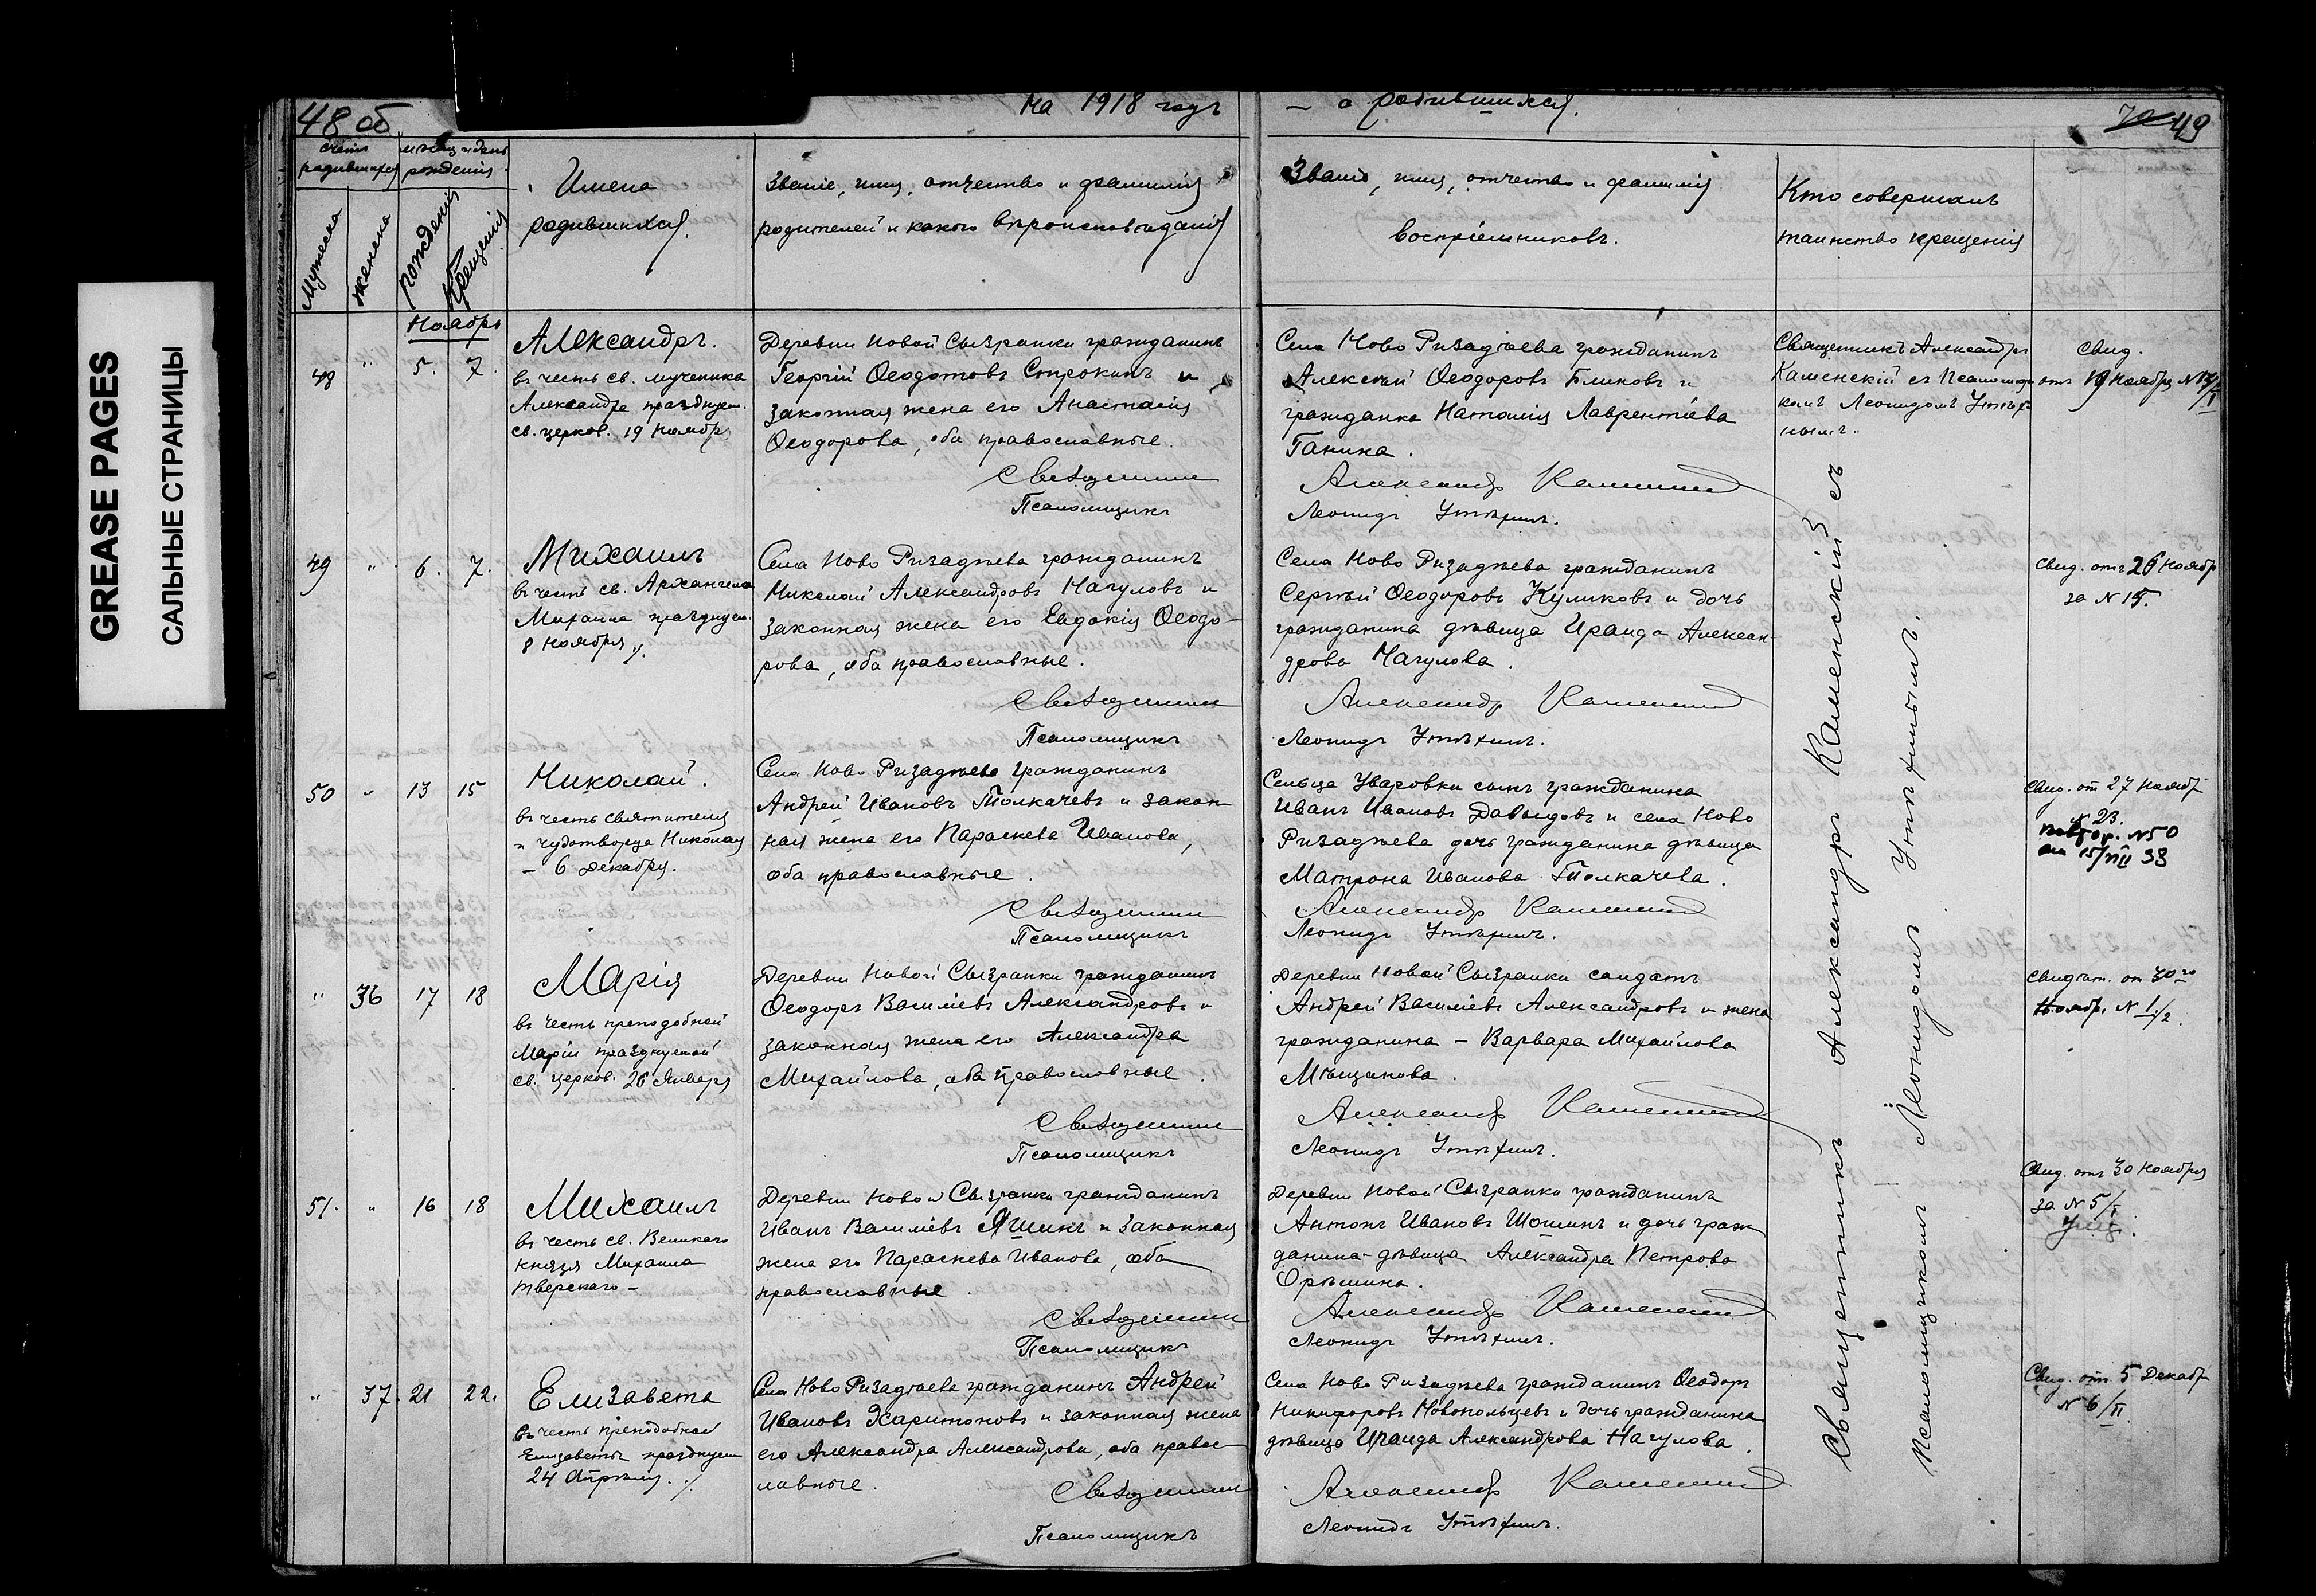 GREASE PAGES
САЛЬНЫЕ СТРАНИЦЫ
48 об.
на 1918 годъ
— о родившихся.
49
счетъ родившихся
мѣсяцъ и день рожденія
Мужеска
женска
рожденія
крещенія
Имена
родившихся.
Званіе, имя, отчество и фамилія
родителей и какого вѣроисповѣданія
Званіе, имя, отчество и фамилія
воспріемниковъ.
Кто совершалъ
таинство крещенія
Ноябрь
48 " 5. 7.
Александръ.
въ честь св. мученика
Александра празднуем.
св. церков. 19 ноября
Деревни Новой Сызранки гражданинъ
Георгій Ѳеодотовъ Строкинъ и
законная жена его Анастасія
Ѳеодорова, оба православные.
Священникъ
Псаломщикъ
Села Ново Ризадѣева гражданинъ
Алексѣй Ѳеодоровъ Блиновъ и
гражданка Наталія Лаврентіева
Ганина.
Александръ Каменскій
Леонидъ Утѣхинъ.
Священникъ Александръ
Каменскій съ Псаломщи-
комъ Леонидомъ Утѣхи-
нымъ.
Свид.
отъ 19 Ноября
49 " 6. 7.
Михаилъ
въ честь св. Архангела
Михаила празднуем.
8 ноября.
Села Ново Ризадѣева гражданинъ
Николай Александровъ Нагуловъ и
законная жена его Евдокія Ѳеодо-
рова, оба православные.
Священникъ
Псаломщикъ
Села Ново Ризадѣева гражданинъ
Сергѣй Ѳеодоровъ Куликовъ и дочь
гражданина дѣвица Ираида Алексан-
дрова Нагулова.
Александръ Каменскій
Леонидъ Утѣхинъ.
Свид. отъ 26 Ноябр
за N 15.
50 " 13 15
Николай.
въ честь святителя
и чудотворца Николая
— 6 Декабря.
Села Ново Ризадѣева гражданинъ
Андрей Ивановъ Толкачевъ и закон
ная жена его Параскева Иванова,
оба православные.
Священникъ
Псаломщикъ
Сельца Уваровки сынъ гражданина
Иванъ Ивановъ Давыдовъ и села Ново
Ризадѣева дочь гражданина дѣвица
Матрона Иванова Толкачева.
Александръ Каменскій
Леонидъ Утѣхинъ.
Свид. от 27 Ноябр
N 23.
повтор. N50
15/VIII 38
" 36 17 18
Марія
въ честь преподобной
Маріи празднуемой
св. церков. 26 Января
Деревни Новой Сызранки гражданинъ
Ѳеодоръ Василіевъ Александровъ и
законная жена его Александра
Михайлова, оба православные.
Священникъ
Псаломщикъ
Деревни Новой Сызранки солдатъ
Андрей Василіевъ Александровъ и жена
гражданина — Варвара Михайлова
Мѣщанова.
Александръ Каменскій
Леонидъ Утѣхинъ.
от 30го
Ноябр. N 1/2.
51. " 16 18
Михаилъ
въ честь св. Великаго
князя Михаила
Тверскаго —
Деревни Новой Сызранки гражданинъ
Иванъ Василіевъ Яшинъ и законная
жена его Параскева Иванова, оба
православные.
Священникъ
Псаломщикъ
Деревни Новой Сызранки гражданинъ
Антонъ Ивановъ Шошинъ и дочь граж
данина-дѣвица Александра Петрова
Орѣшина.
Александръ Каменскій
Леонидъ Утѣхинъ.
Свид. отъ 30 Ноября
за N 5/I
" 37. 21 22.
Елизавета
въ честь преподобной
Елизаветы празднуем
24 Апрѣля.
Села Ново Ризадѣева гражданинъ Андрей
Ивановъ Харитоновъ и законная жена
его Александра Александрова, оба правос-
лавные.
Священникъ
Псаломщикъ
Села Ново Ризадѣева гражданинъ Ѳеодоръ
Никифоровъ Новопольцевъ и дочь гражданина
дѣвица Ираида Александрова Нагулова.
Александръ Каменскій
Леонидъ Утѣхинъ.
Свид. отъ 5 Декабр
N 6/II
Священникъ Александръ Каменскій съ
Псаломщикомъ Леонидомъ Утѣхинымъ.